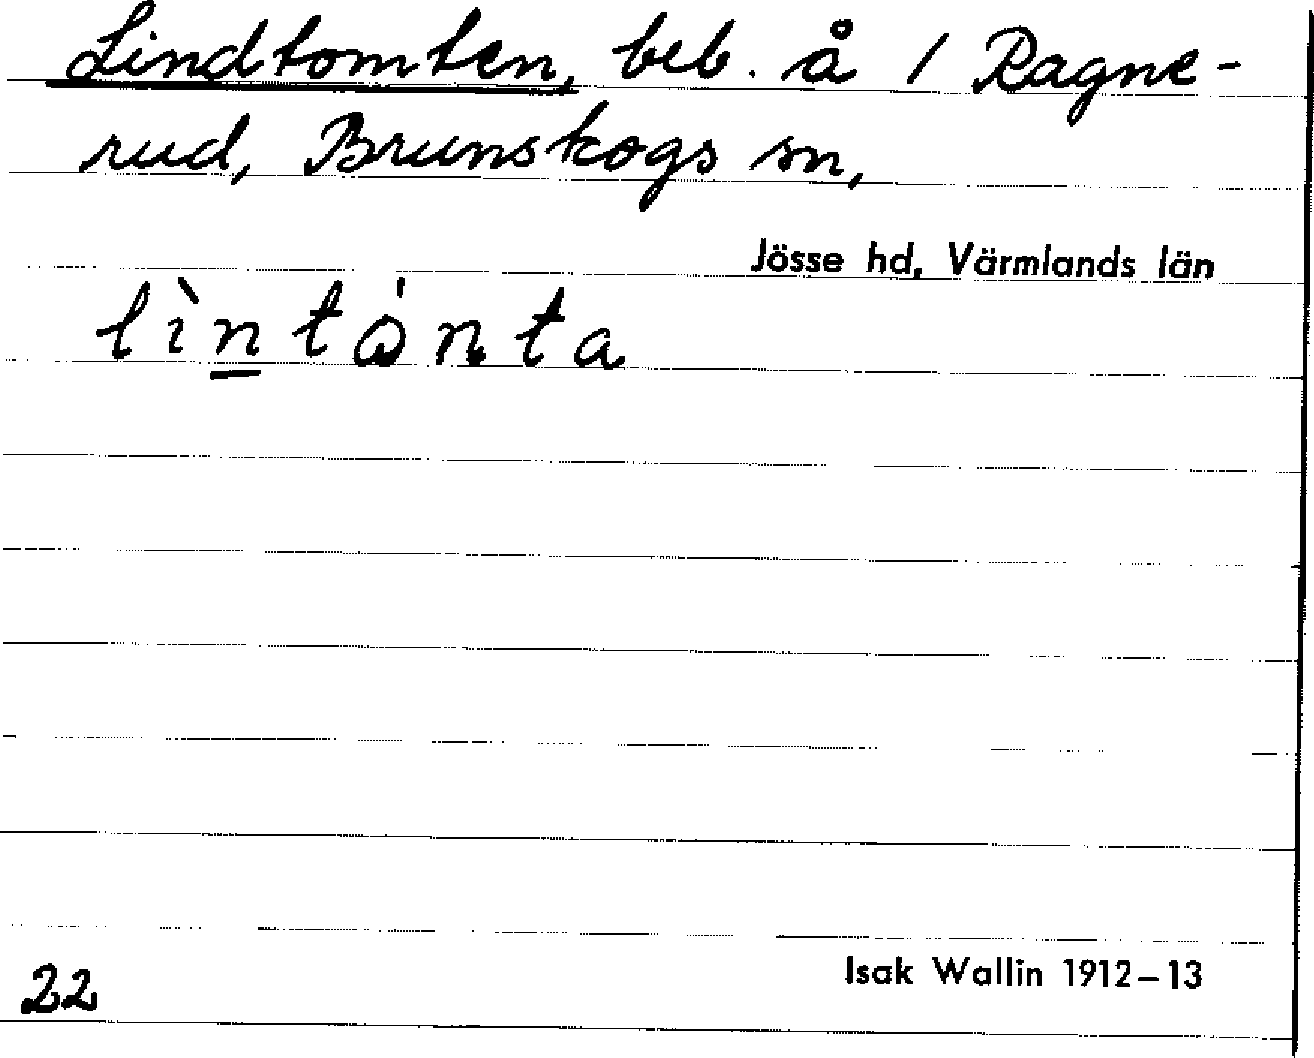 Lindtomten, beb. å 1 Ragne-
rud, Brunskogs sn,
Jösse hd, Värmlands län
lìntònta
22
Isak Wallin 1912–13